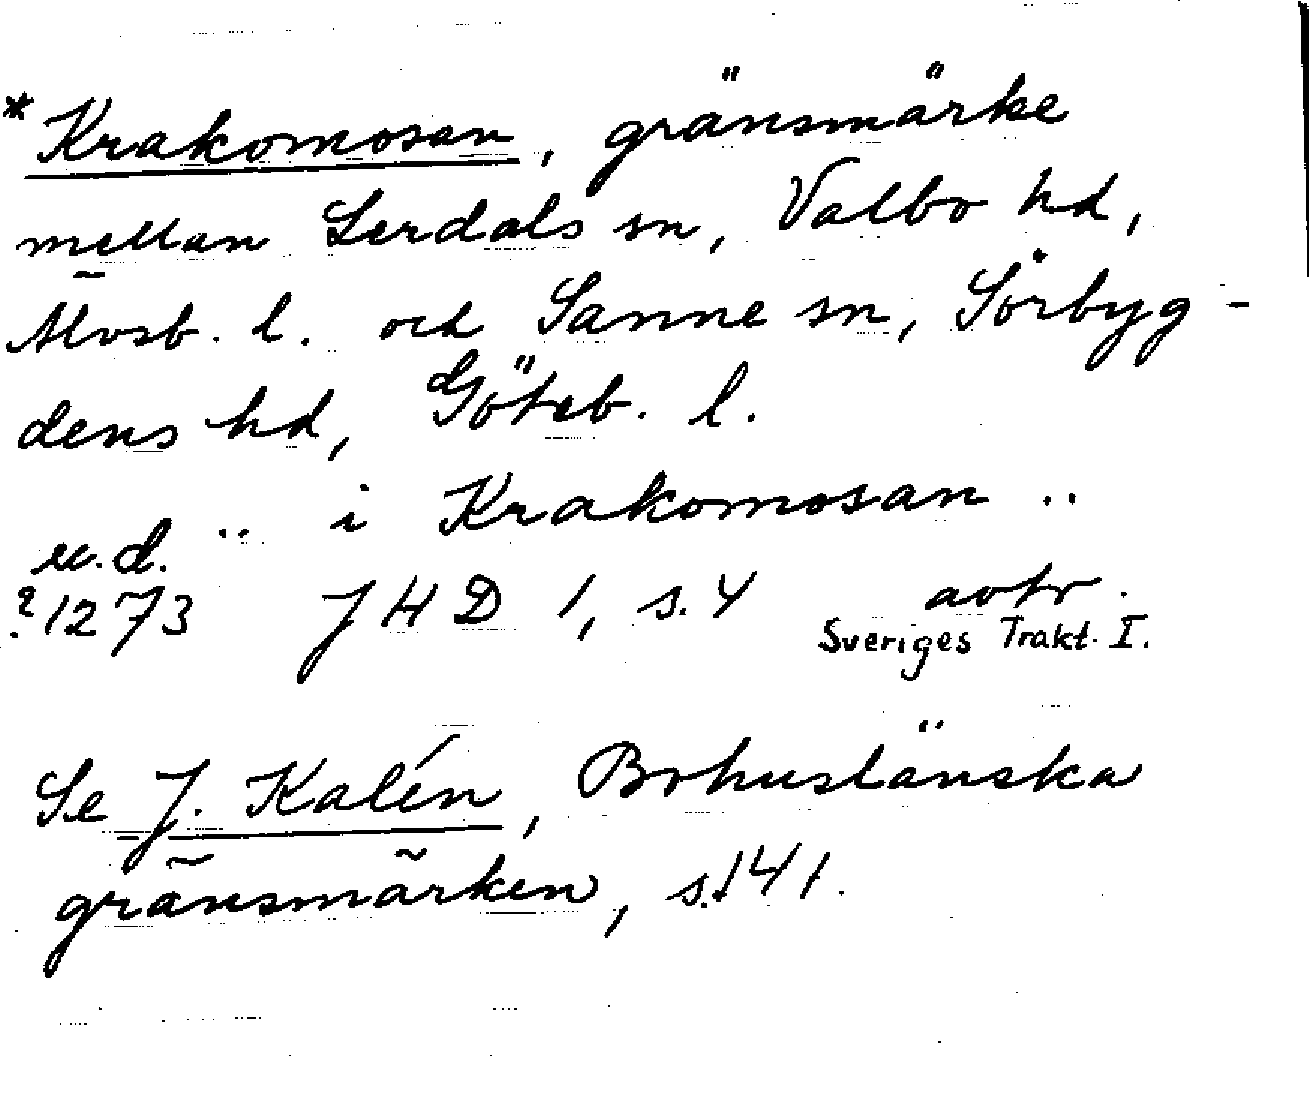 *Krakomosan, gränsmärke
mellan Lerdals sn, Valbo hd,
Älvsb. l. och Sanne sn, Sörbyg-
dens hd, Göteb. l.
u.d. .. i Krakomosan ..
?1273 JHD 1, s. 4 avtr.
Sveriges Trakt. I.
Se J. Kalén, Bohuslänska
gränsmärken, s. 141.